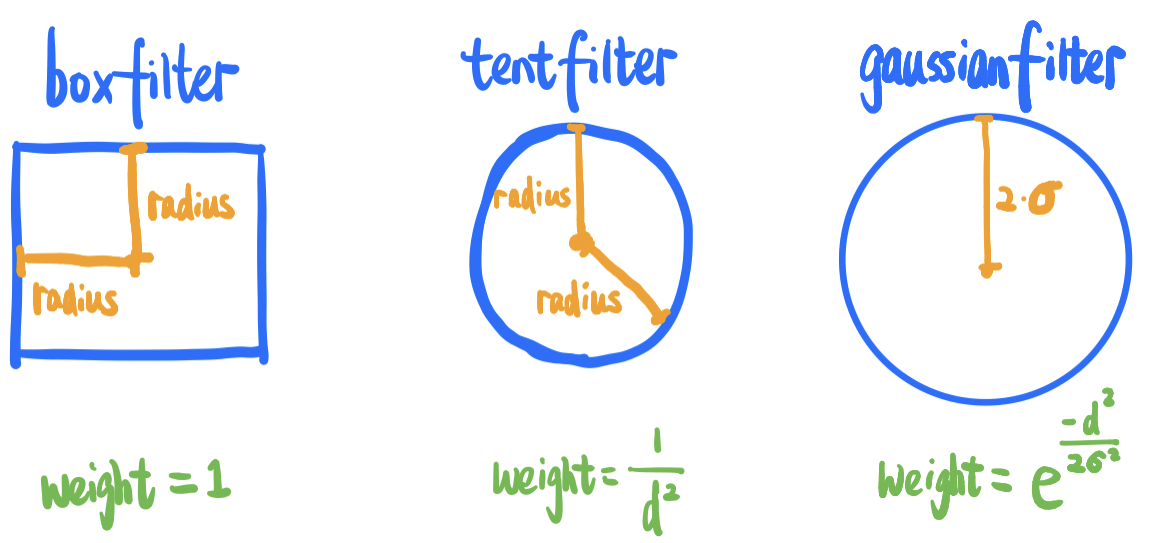 box filter
radius
radius
weight = 1
tent filter
radius
radius
weight = 1/d²
gaussian filter
2·σ
weight = e^(-d²/2σ²)